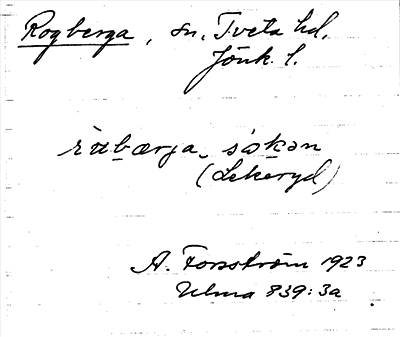 Rogberga, sn, Tveta hd.
Jönk. l.
rʉbærja sɷkən
(Lekeryd)
A. Forsström 1923
Ulma 839:3a